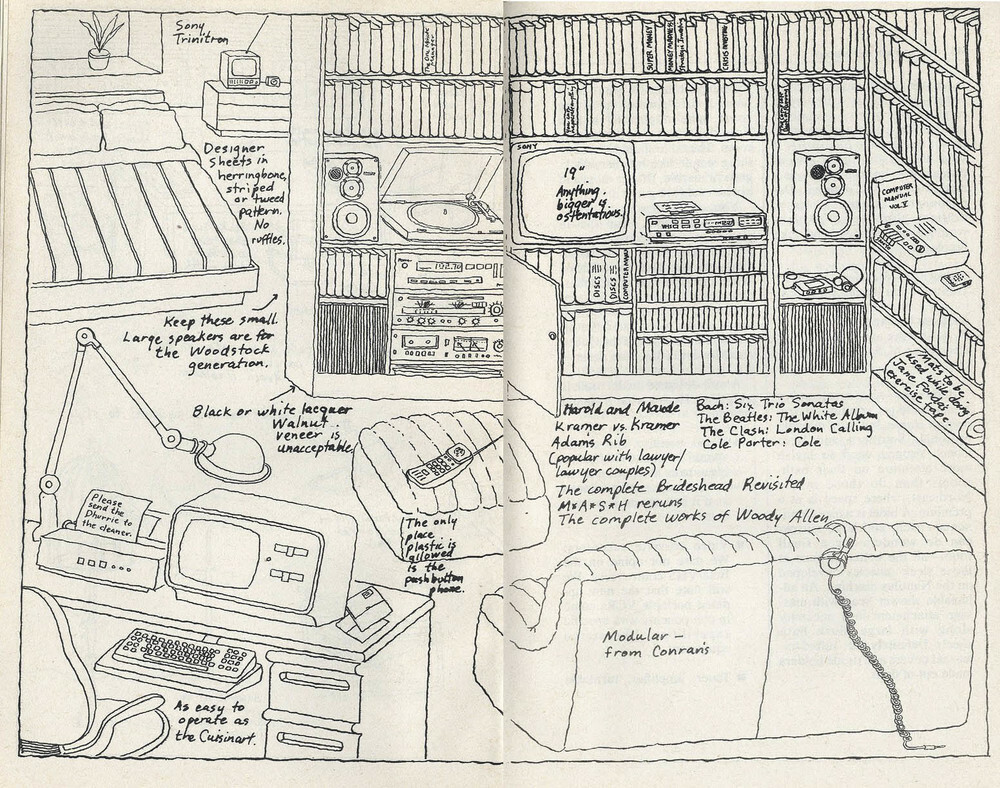 Sony
Trinitron
Designer
sheets in
herringbone,
striped
or tweed
pattern.
No
ruffles.
Keep these small.
Large speakers are for
the Woodstock
generation.
Black or white lacquer
Walnut..
veneer is
unacceptable.
Please
send the
Dhurrie to
the cleaner.
As easy to
operate as
the Cuisinart.
The only
place
plastic is
allowed
is the
pushbutton
phone.
SUPER MONEY
CRISIS INVESTING
SONY
19"
Anything
bigger is
ostentatious.
DISCS
DISCS
COMPUTER
COMPUTER
MANUAL
VOL V
Mats to be
used while doing
Jane Fonda's
exercise tape.
Harold and Maude
Kramer vs. Kramer
Adam's Rib
(popular with lawyer/
lawyer couples)
The complete Brideshead Revisited
M*A*S*H reruns
The complete works of Woody Allen
Bach: Six Trio Sonatas
The Beatles: The White Album
The Clash: London Calling
Cole Porter: Cole
Modular –
from Conran's